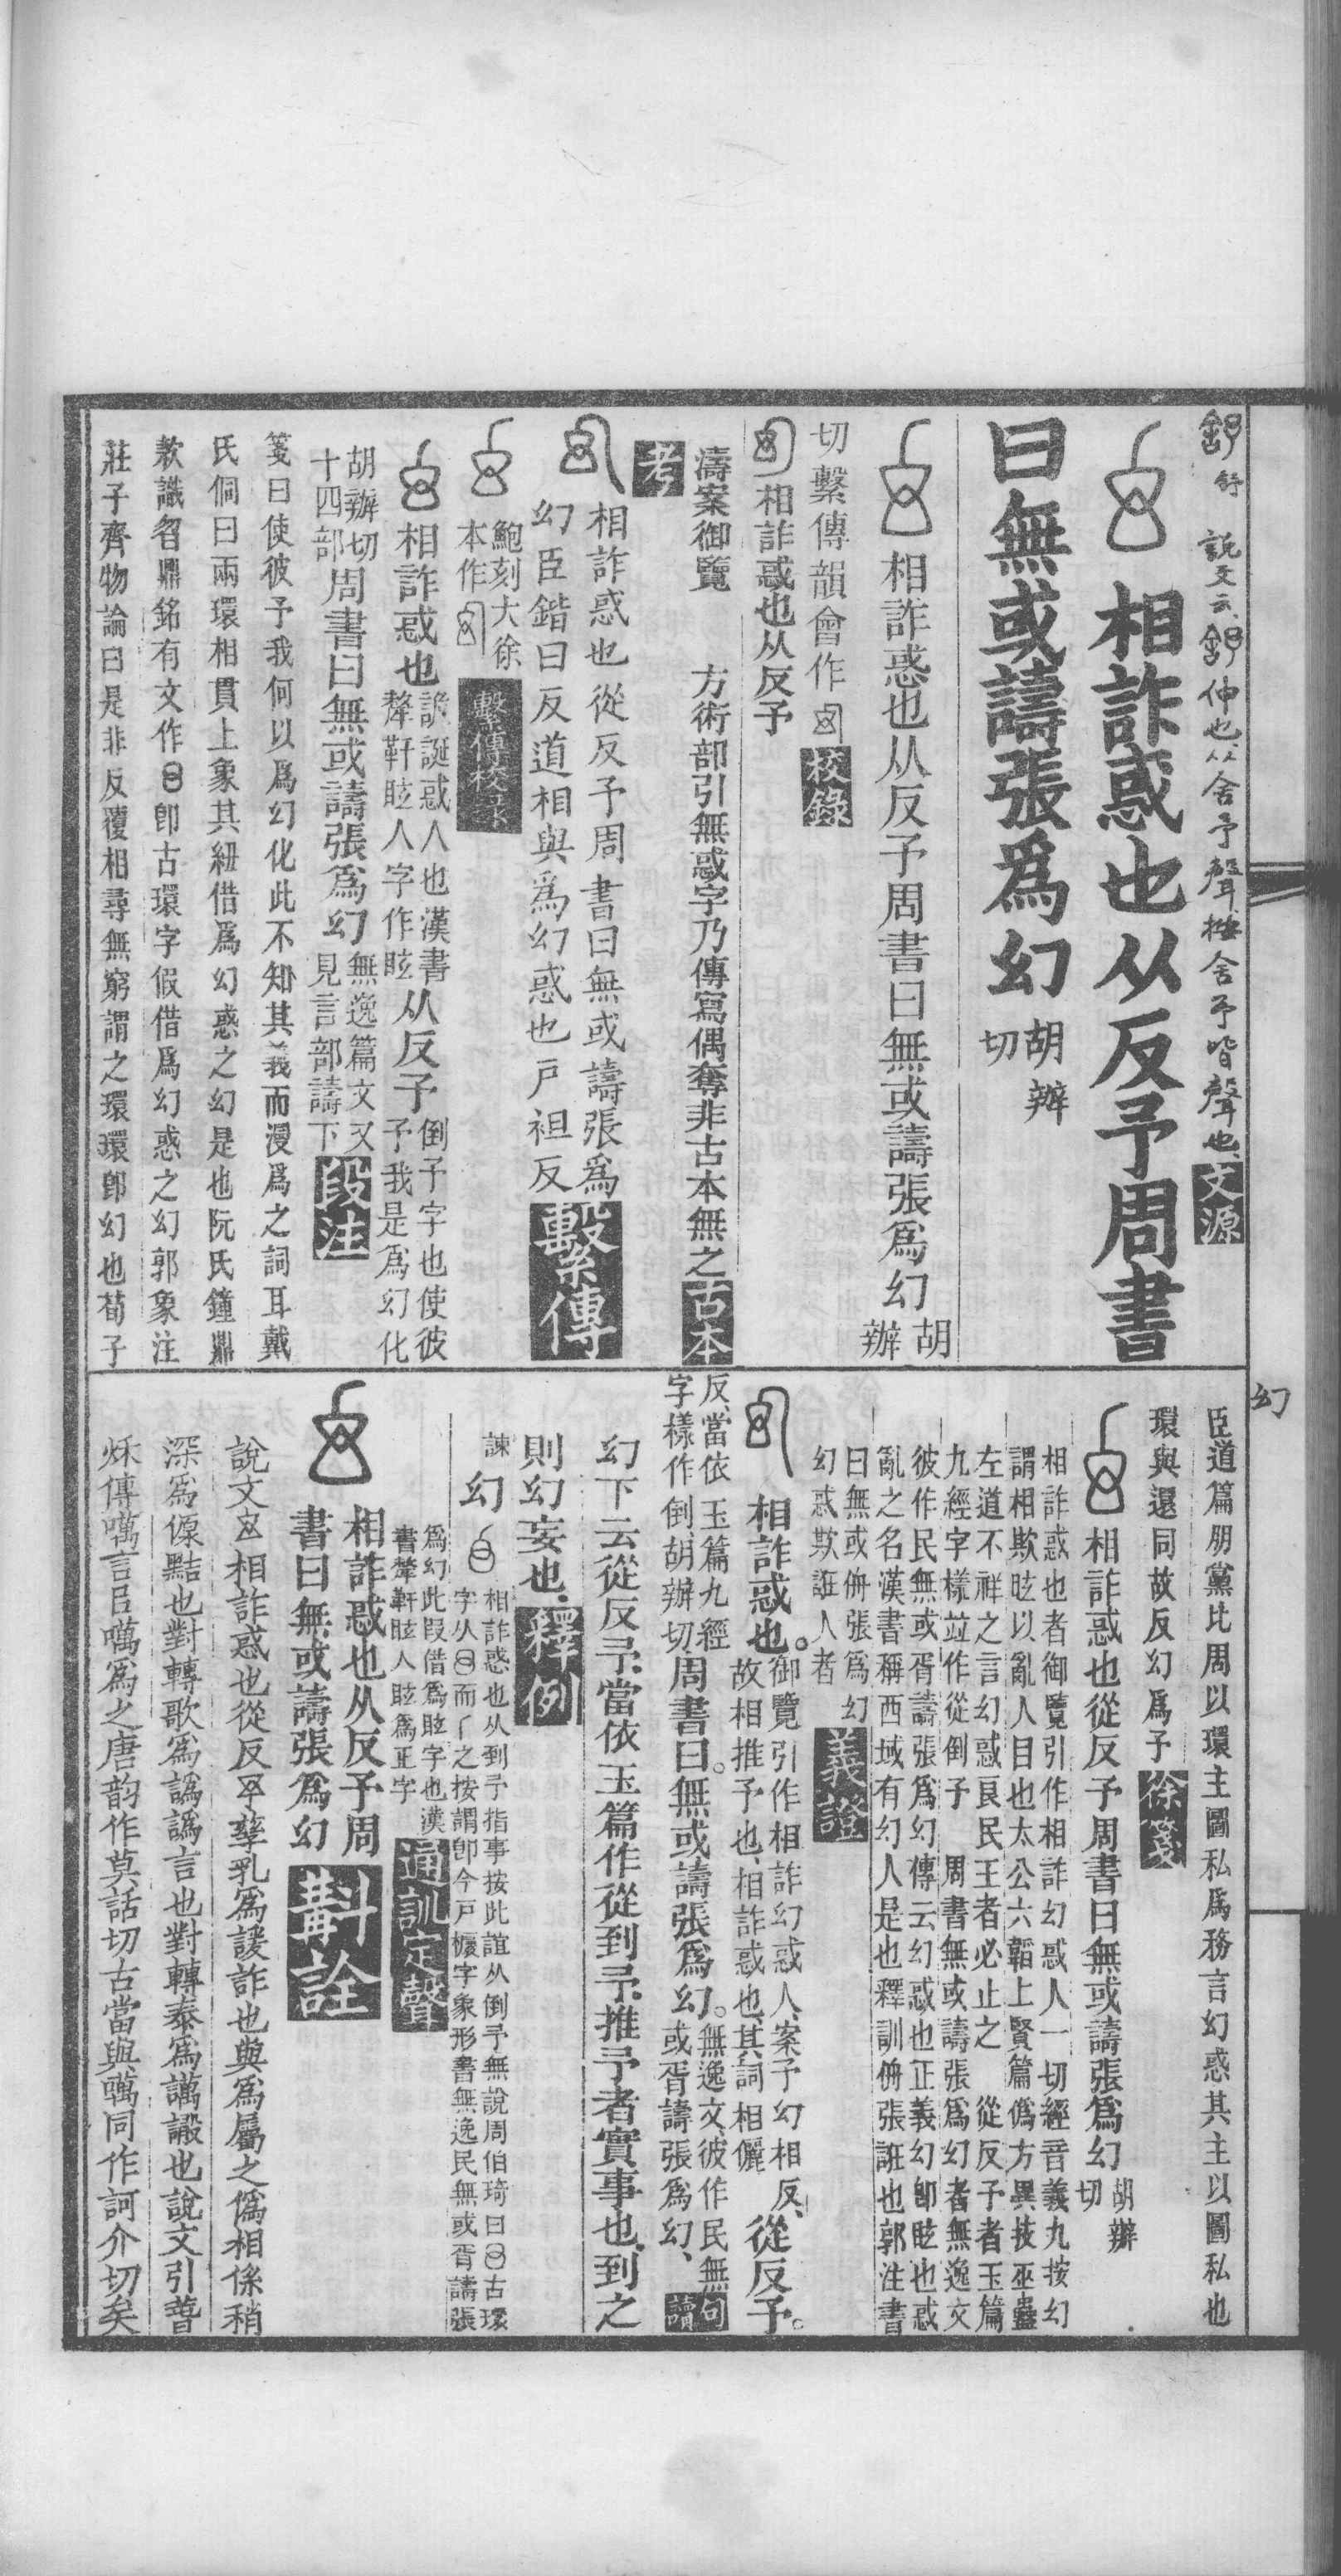 舒 說文云舒伸也从舍予聲按舍予皆聲也 文源
相詐惑也从反予周書
曰無或譸張爲幻 胡辦切
相詐惑也从反予周書曰無或譸張爲幻 胡辦
切繫傳韻會作 校錄
相詐惑也从反予
濤案御覽 方術部引無惑字乃傳寫偶奪非古本無之 古本
考
相詐惑也從反予周書曰無或譸張爲
幻臣鍇曰反道相與爲幻惑也戸袒反 繫傳
鮑刻大徐
本作 繫傳校錄
相詐惑也 詭誕惑人也漢書犛靬眩人字作眩 从反予 倒予字也使彼予我是爲幻化
胡辦切十四部 周書曰無或譸張爲幻 無逸篇文又見言部譸下 段注
箋曰使彼予我何以爲幻化此不知其義而漫爲之詞耳戴
氏侗曰兩環相貫上象其紐借爲幻惑之幻是也阮氏鐘鼎
款識曶鼎銘有文作 卽古環字假借爲幻惑之幻郭象注
莊子齊物論曰是非反覆相尋無窮謂之環環卽幻也荀子
幻
臣道篇朋黨比周以環主圖私爲務言幻惑其主以圖私也
環與還同故反幻爲予 徐箋
相詐惑也從反予周書曰無或譸張爲幻 胡辦切
相詐惑也者御覽引作相詐幻惑人一切經音義九按幻
謂相欺眩以亂人目也太公六韜上賢篇僞方異技巫蠱
左道不祥之言幻惑良民王者必止之 從反予者玉篇
九經字樣竝作從倒予 周書無或譸張爲幻者無逸文
彼作民無或胥譸張爲幻傳云幻惑也正義幻卽眩也惑
亂之名漢書稱西域有幻人是也釋訓侜張誑也郭注書
曰無或侜張爲幻
幻惑欺誑人者 義證
相詐惑也。 御覽引作相詐幻惑人、案予幻相反、故相推予也、相詐惑也、其詞相儷 從反予。
反、當依玉篇九經字樣作倒、胡辦切 周書曰。無或譸張爲幻。 無逸文、彼作民無或胥譸張爲幻、 句讀
幻下云從反予、當依玉篇作從到予、推予者實事也、到之
則幻妄也、 釋例
諫 幻 相詐惑也从到予指事按此誼从倒予無說周伯琦曰 古環
字从 而 之按謂卽今戸 字象形書無逸民無或胥譸張
爲幻此叚借爲眩字也漢
書犛軒眩人眩爲正字 通訓定聲
相詐惑也从反予周
書曰無或譸張爲幻 斠詮
說文 相詐惑也從反 孳乳爲諼詐也與爲屬之僞相係稍
深爲傆黠也對轉歌爲譌譌言也對轉泰爲講譤也說文引
傳噧言曰噧爲之唐韵作莫話切古當與噧同作訶介切矣